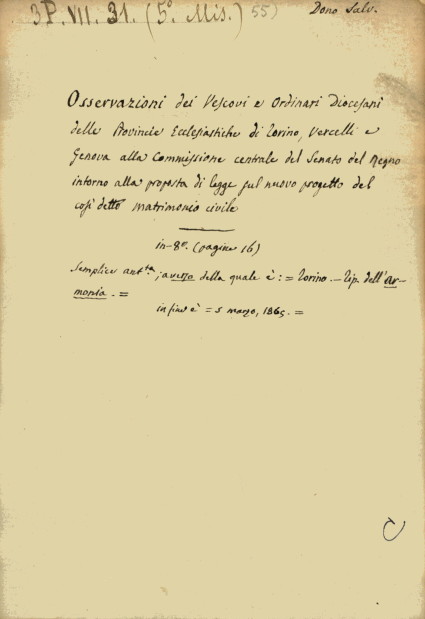 3P. VII. 31. (5° Mis.) 55)
Dono Salv.
Osservazioni dei Vescovi e Ordinari Diocesani
delle Provincie Ecclesiastiche di Torino, Vercelli e
Genova alla Commissione centrale del Senato del Regno
intorno alla proposta di legge sul nuovo progetto del
così detto matrimonio civile
in-8°. (pagine 16)
Semplice ant.ta, a verso della quale è: = Torino. - Tip. dell'Ar-
monia. =
in fine è = 5 marzo, 1865. =